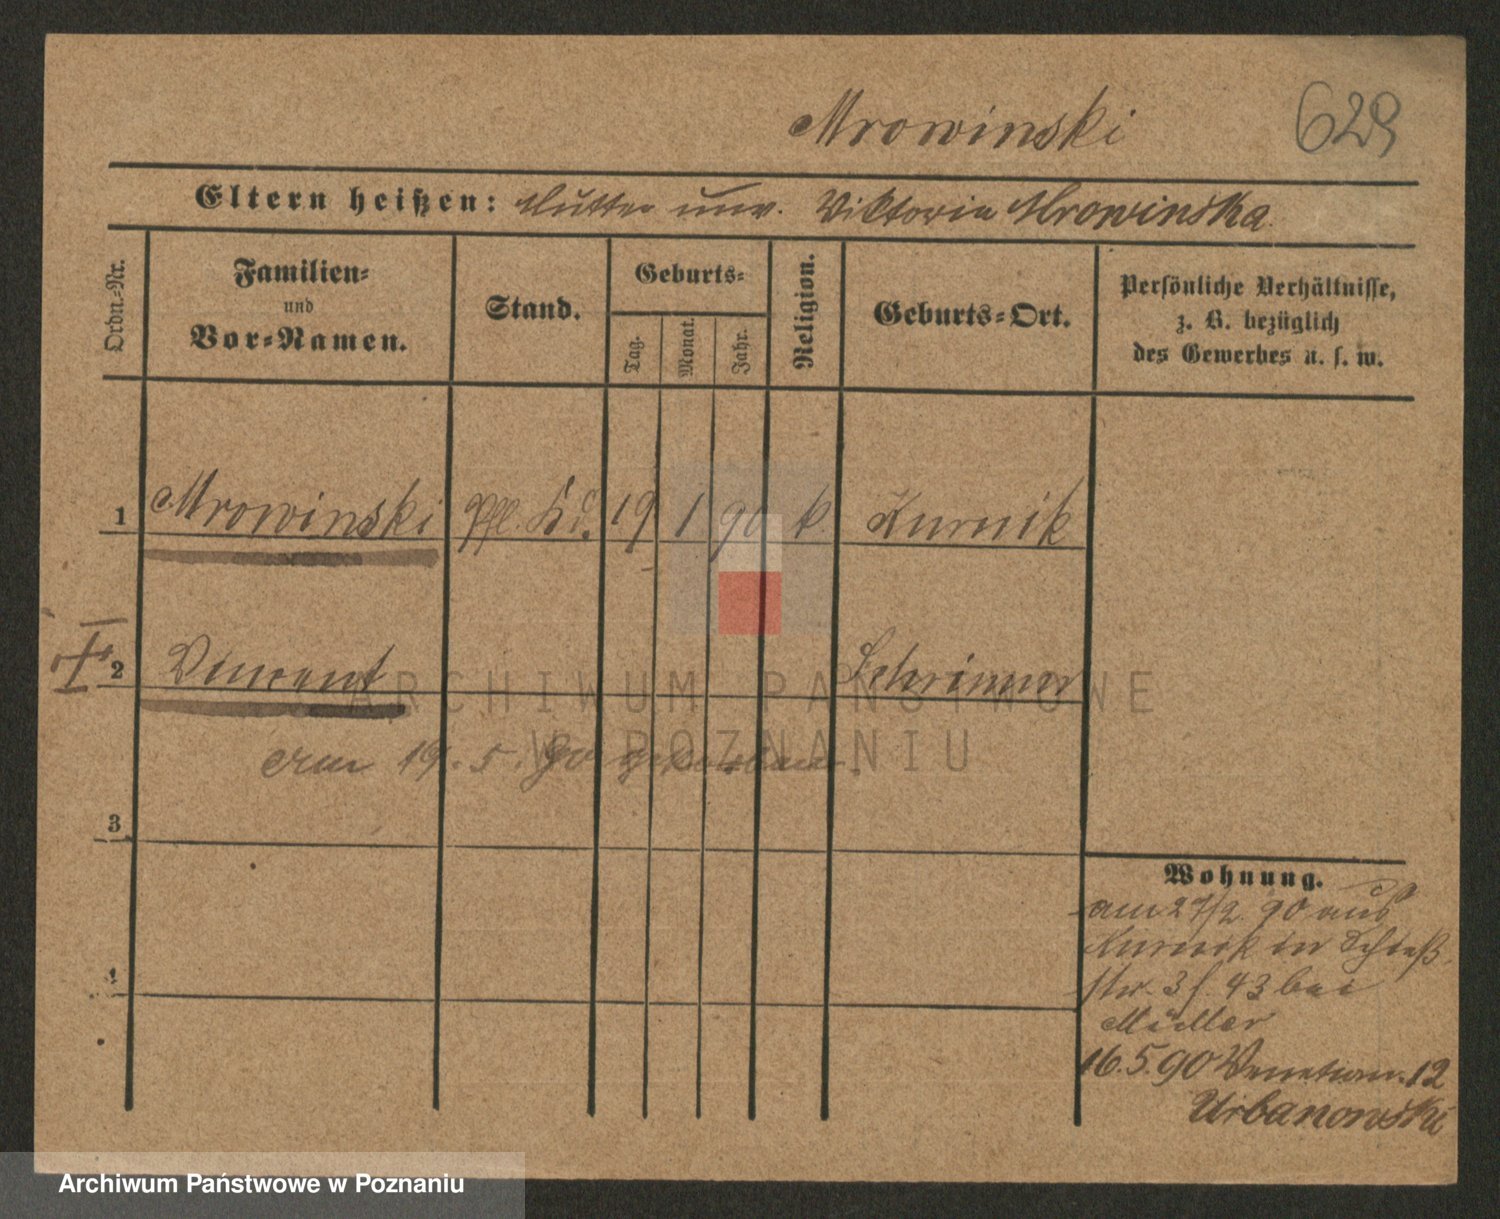 Mrowinski
629
Eltern heißen: Mutter unv. Viktoria Mrowinska.
Ordn.-Nr.
Familien-
und
Vor-Namen.
Stand.
Geburts-
Tag.
Monat.
Jahr.
Religion.
Geburts-Ort.
Persönliche Verhältnisse,
z. B. bezüglich
des Gewerbes u. s. w.
1 Mrowinski Pfl. Kd. 19 1 90 k. Kurnik
2 Vincent Schrimm
am 19. 5. 90 gestorben.
3
4
Wohnung.
am 27/2. 90 aus
Kurnik in Schieß
str. 3 f. 43 bei
Müller
16.5.90 Venetian. 12
Urbanowski
ARCHIWUM PAŃSTWOWE
W POZNANIU
Archiwum Państwowe w Poznaniu